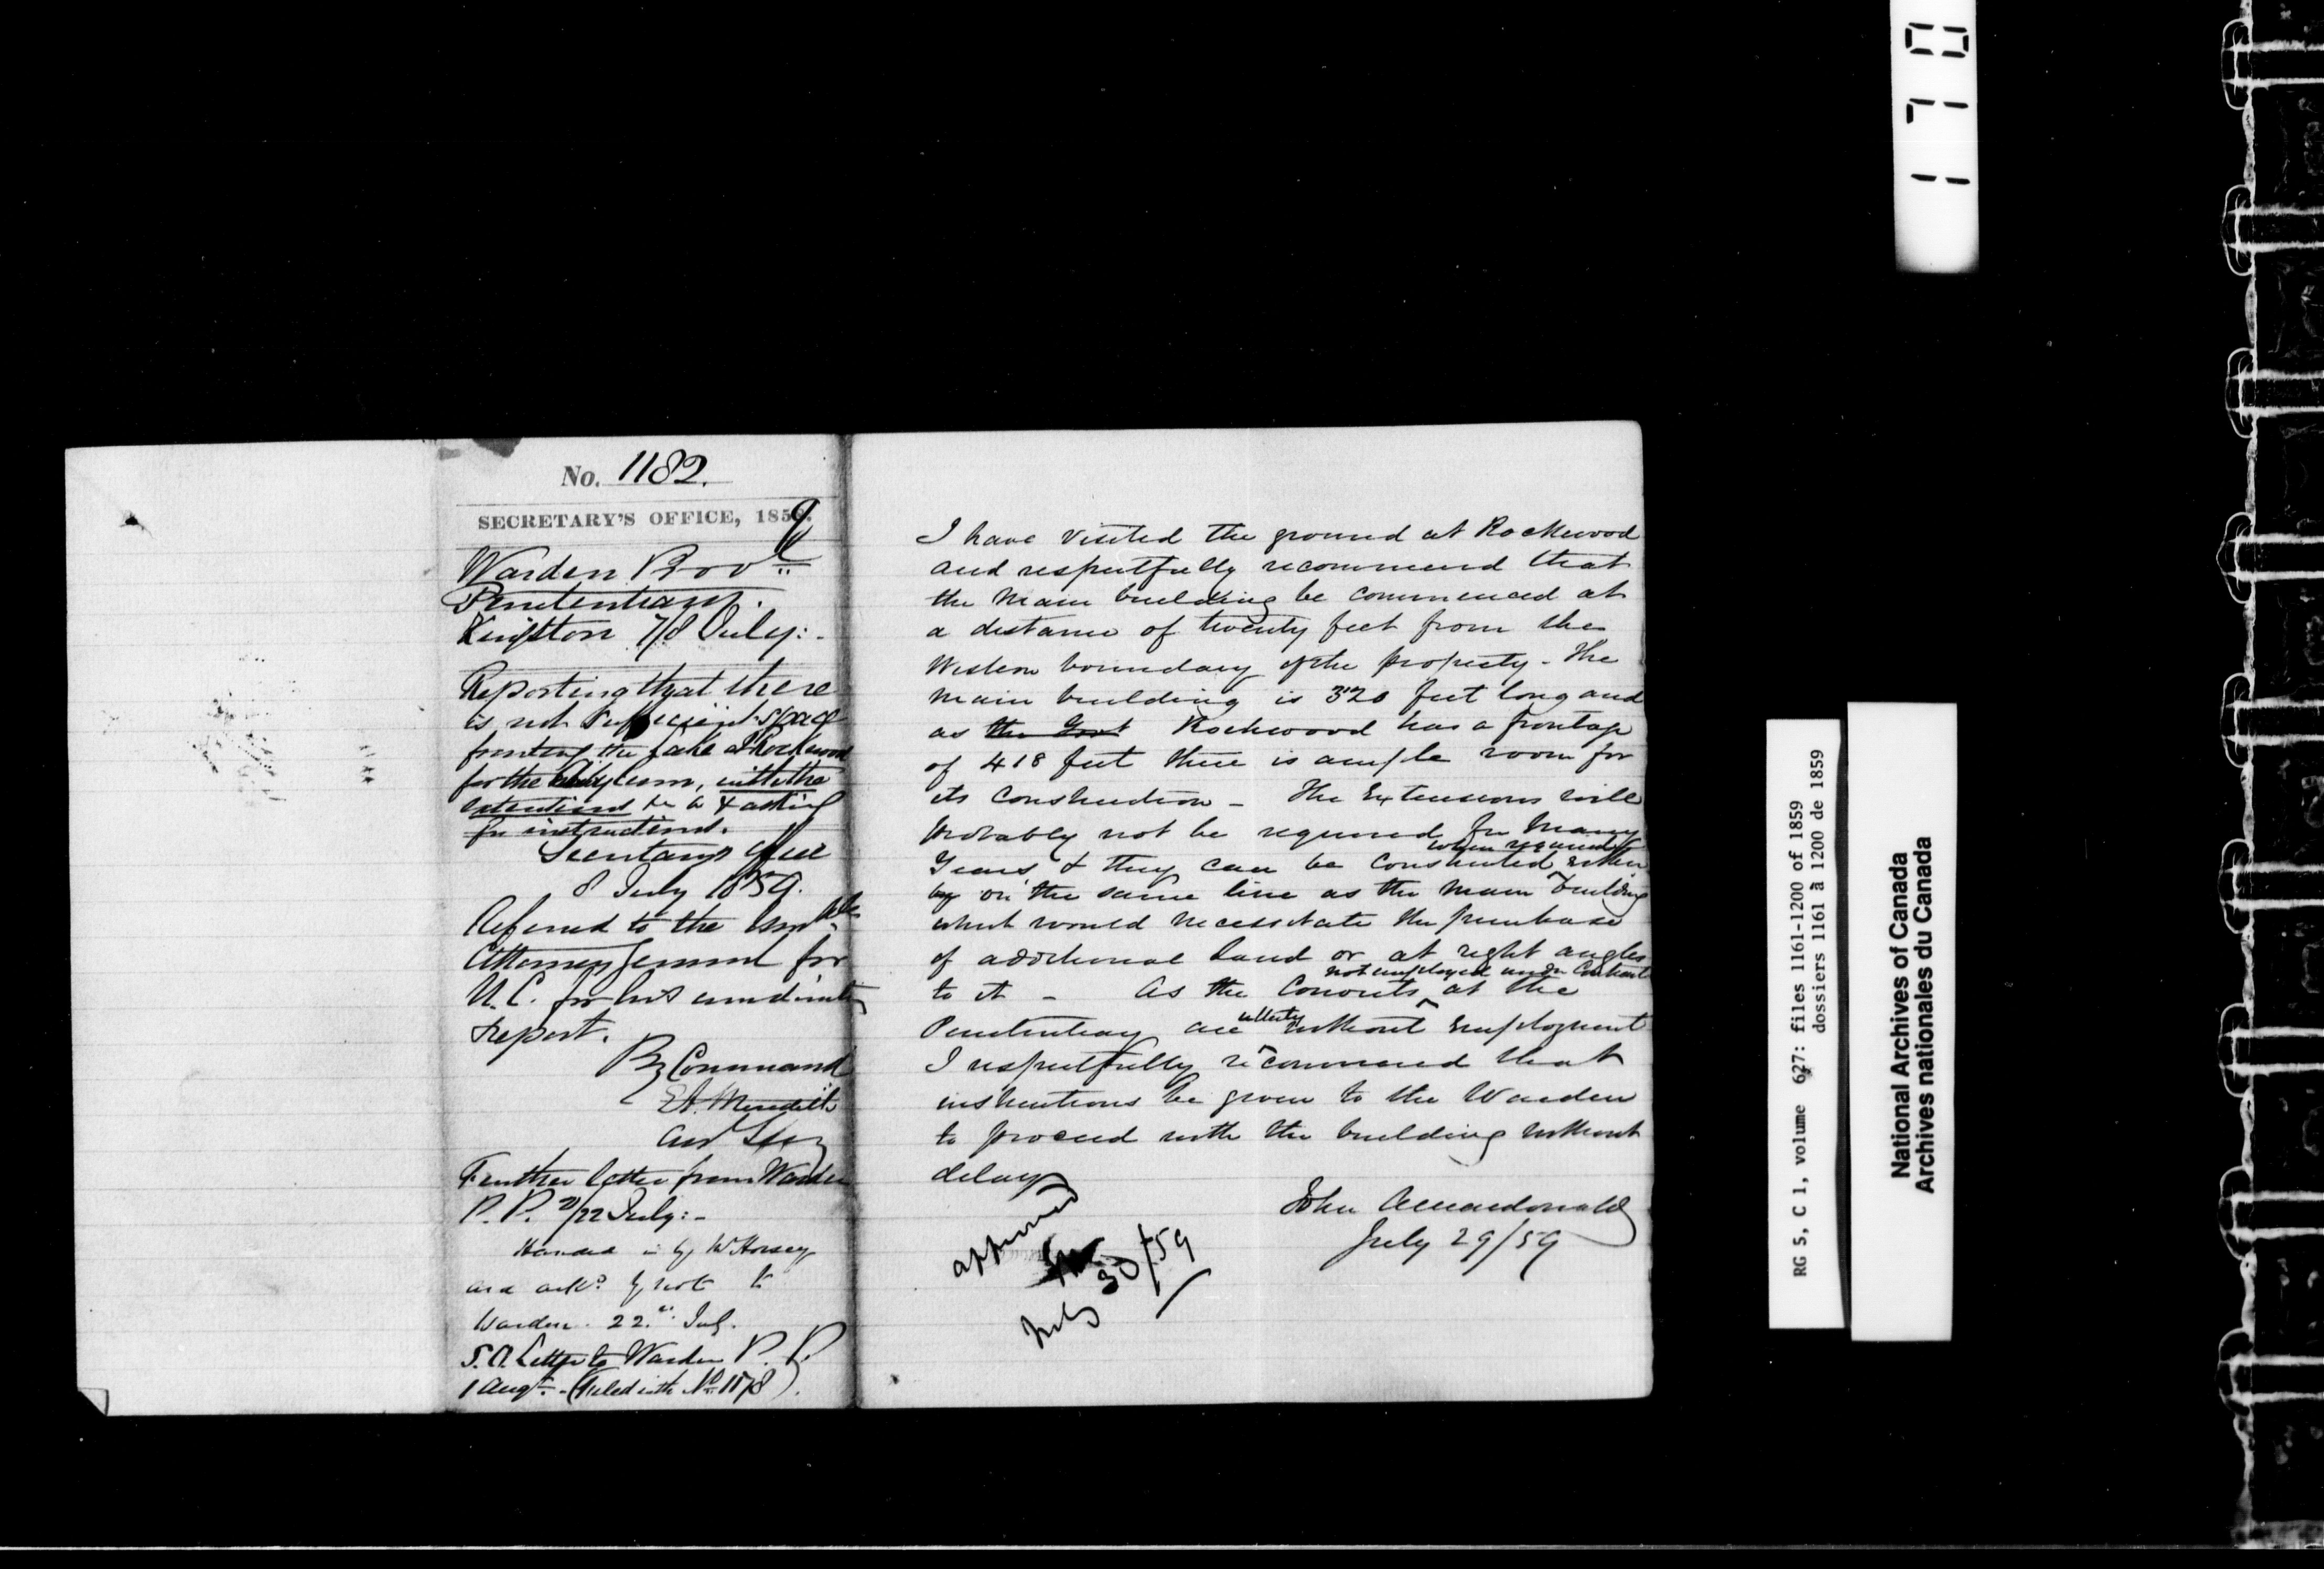 No. 1182.
SECRETARY'S OFFICE, 1859.
Warden Provl
Penitentiary.
Kingston 7/8 July:-
Reporting that there
is not sufficient space
fronting the Lake at Rockwood
for the Asylum, with the
extensions &c & asking
for instructions.
Secretary's Office
8 July 1859.
Referred to the Honble
Attorney General for
U.C. for his immediate
report.
By Command
E A Meredith
Asst Secy
Further letter from Warden
P.P. 21/22 July:-
Handed in by W Horsey
and ackd by note to
Warden. 22nd July.
S.O. Letter to Warden P.P.
1 Augt - (Filed with No. 1178).
I have visited the ground at Rockwood
and respectfully recommend that
the main building be commenced at
a distance of twenty feet from the
Western boundary of the property - The
main building is 320 feet long and
as the Govt Rockwood has a frontage
of 418 feet there is ample room for
its construction - The Extensions will
probably not be required for many
Years & they can be constructed when required either
by on the same line as the main building
which would necessitate the purchase
of additional land or at right angles
to it - As the Convicts not employed under Contract at the
Penitentiary are utterly without employment
I respectfully recommend that
instructions be given to the Warden
to proceed with the building without
delay
John A Macdonald
July 29/59
approved
July 30/59
1170
RG 5, C 1, volume 627: files 1161-1200 of 1859
dossiers 1161 à 1200 de 1859
National Archives of Canada
Archives nationales du Canada